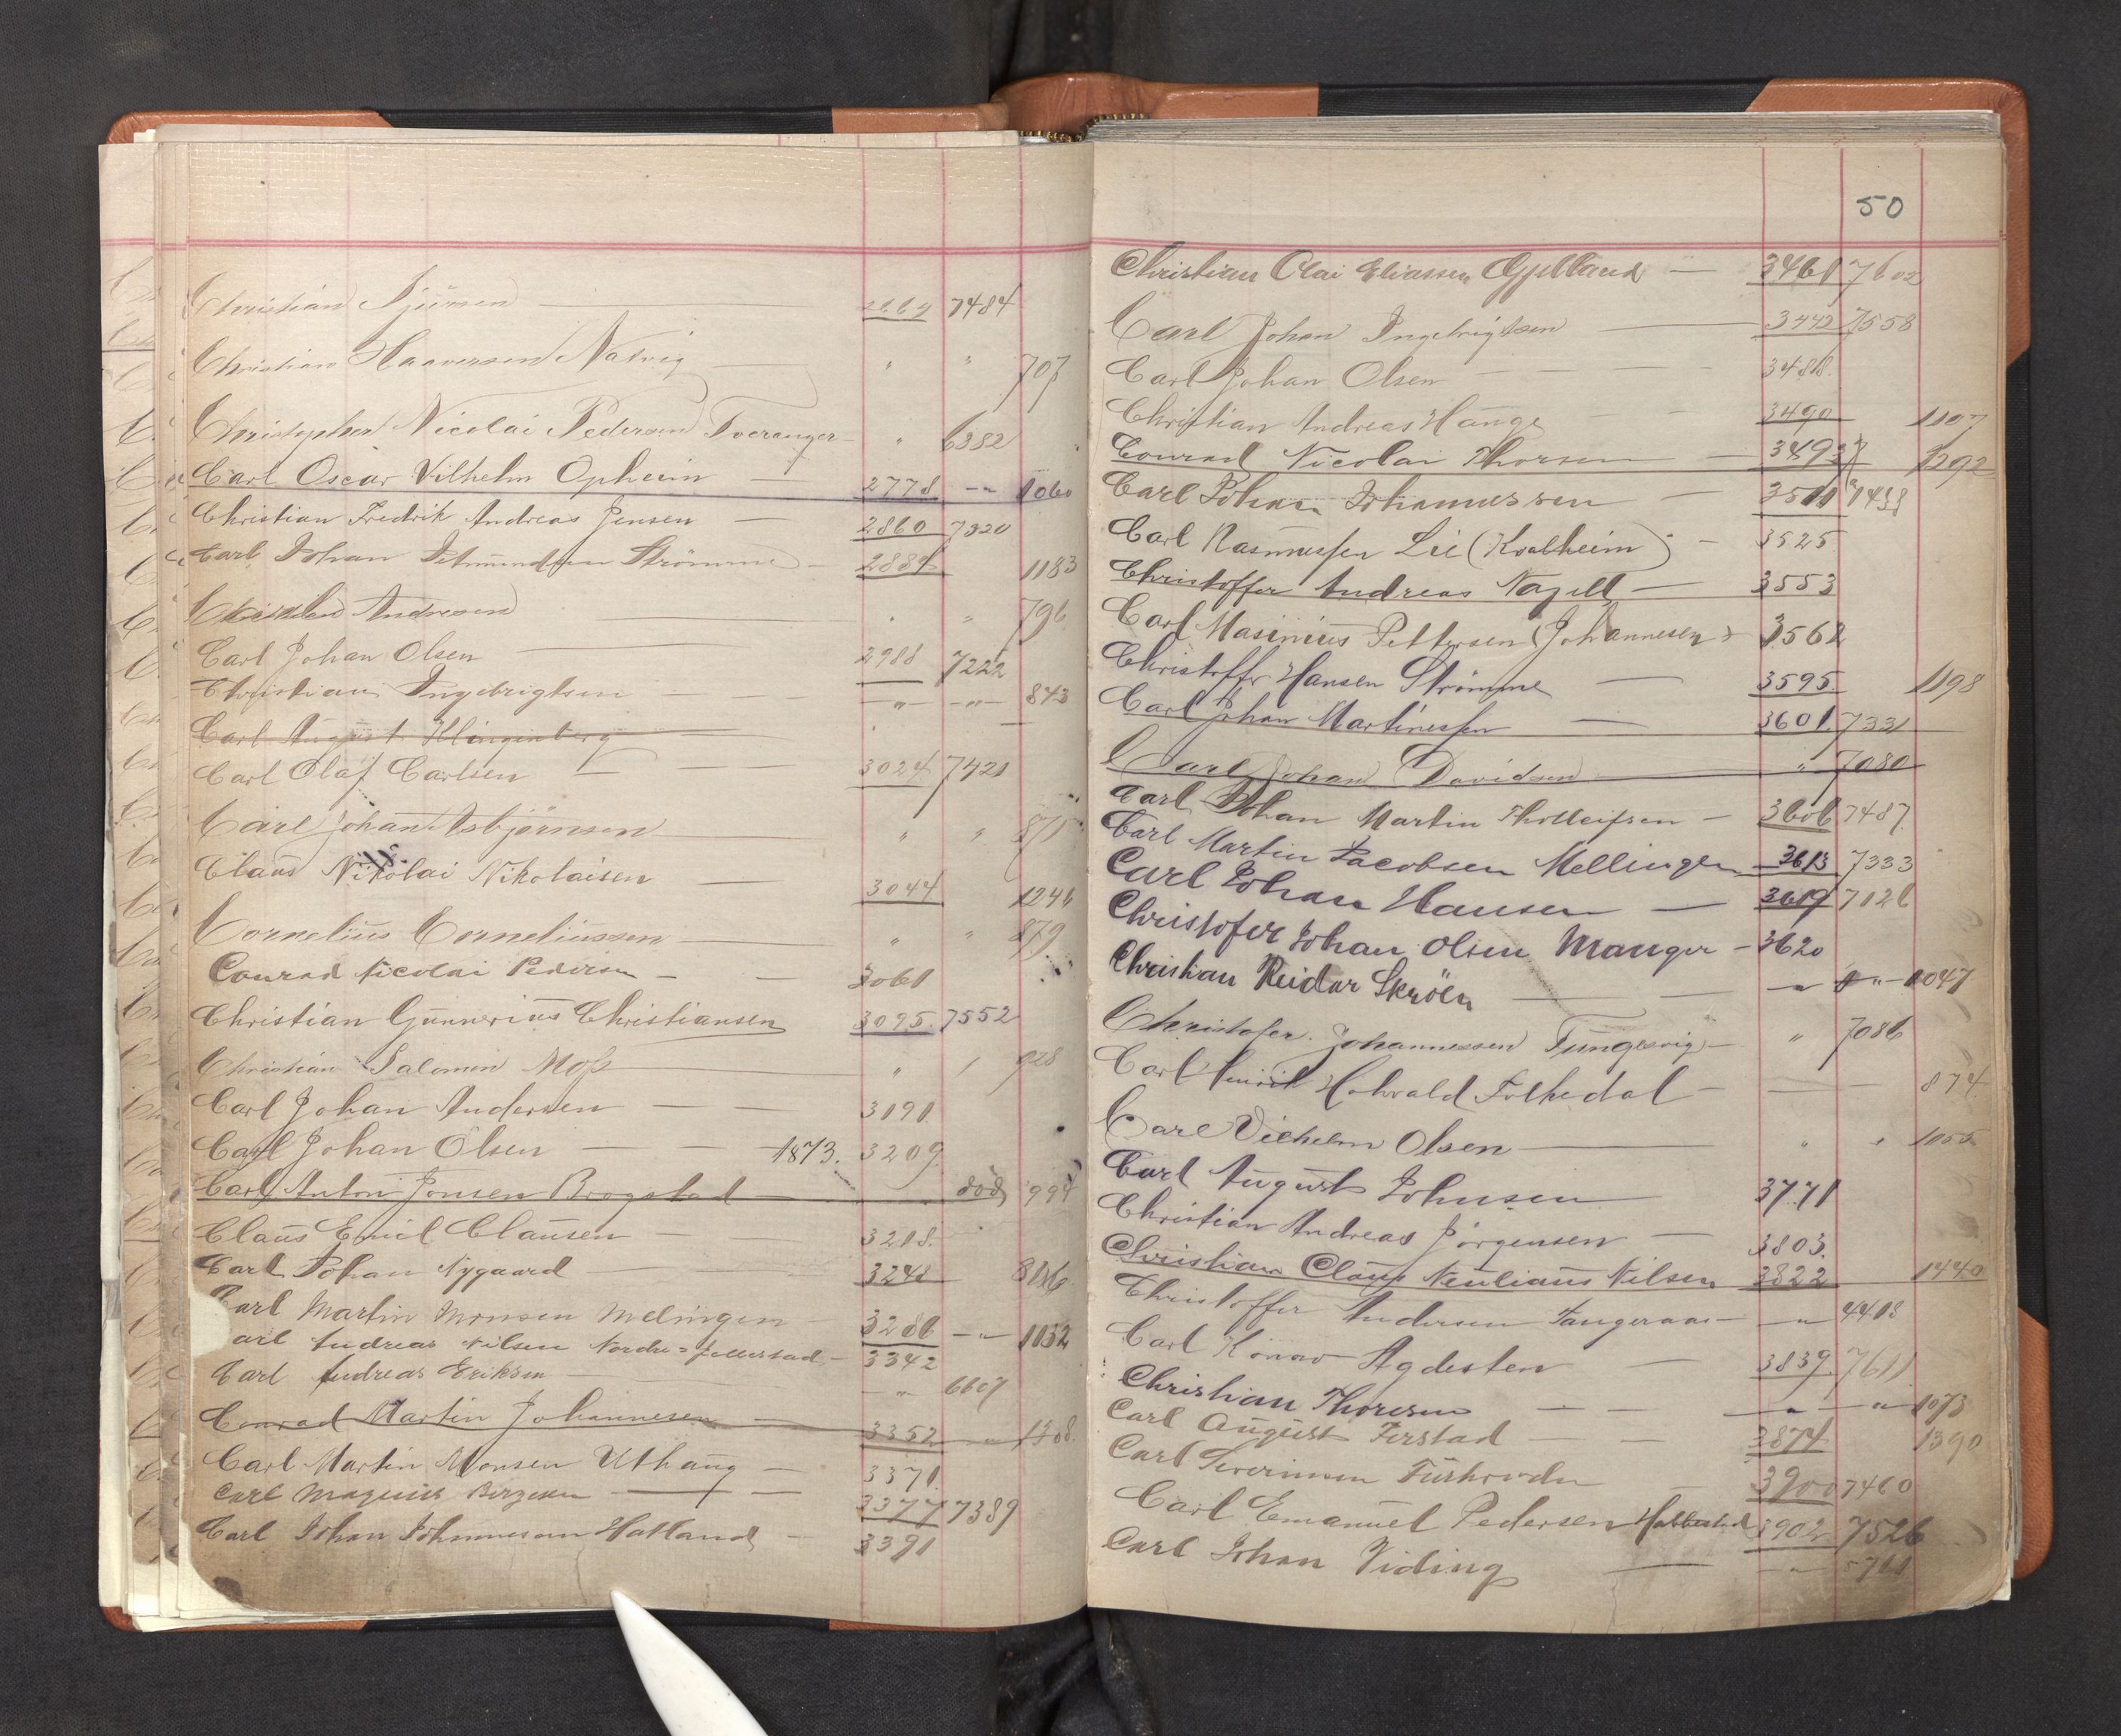 Christian 7484
Christian Haaversen Natvig " " 707
Christopher Nicolai Pedersen Tveranger " 6382
Carl Oscar Vilhelm Opheim 2778 -"- 1060
Christian Fredrik Andreas Jensen 2860 7320
Carl Johan Strömme 2884 1183
Andresen " " 796
Carl Johan Olsen 2988 7222
Christian Ingebrigtsen -"- -"- 843
Carl August Klingenberg
Carl Olaf Carlsen 3024 7421
Carl Johan Asbjørnsen " " 871
Claus Nikolai Nikolaisen 3044 1246
Cornelius Corneliussen " " 879
Conrad Nicolai Pedersen 3061
Christian Gunnerius Christiansen 3095 7552
Christian Salomon Moss " 928
Carl Johan Andersen 3191
Carl Johan Olsen 1873. 3209
Carl Anton Jonsen Brogstad 994
Claus Emil Clausen 3218.
Carl Johan Nygaard 3248
Carl Martin Monsen Melingen 3286 -"- 1132
arl Andreas Nilsen Nordre= 3342
Carl Andreas Eriksen -"- 6607
Conrad Martin Johannesen 3352
Carl Martin Monsen Uthaug 3371
Carl Magnus Bergesen 3377 7389
Carl Johan Johannesen Hatland 3391
50
Christian Olai Eliassen Gjelland 3461 7602
Carl Johan Ingebrigtsen 3442 7558
Carl Johan Olsen 3488
Christian Andreas Hauge 3490 1107
Conrad Nicolai Thorsen 3493 1292
Carl Johan Johannessen 3511
Carl Rasmussen Lie (Kvalheim) 3525
Christoffer Andreas Nagell 3553
Carl Masinius Pettersen (Johannesen) 3562
Christoffer Hansen Strømme 3595 1198
Carl Johan Martinessen 3601. 7331
Carl Johan Davidsen " 7080
Carl Johan Martin Tholleifsen 3606 7487.
Carl Martin Jacobsen Mellingen 3613 7333
Carl Johan Hansen 3619 7126
Christofer Johan Olsen Manger 3620
Christian Reidar Skröen -"- -"- 1047
Christofer Johannessen Tungesvig " 7086
Carl Henrik Hohvald Folkedal 874
Carl Vilhelm Olsen " " 1055
Carl August Johnsen 3771
Christian Andreas Jörgensen 3803.
Christian Claus Neuliaus Nilsen 3822 1440
Christoffer Andersen Tangeraas -"- 4418
Carl Konow Agdesten 3839. 7611
Christian Thoresen -"- -"- 1073
Carl August Ferstad 3874 1390
Carl Severinsen 3900 7460
Carl Emanuel Pedersen 3902 7526
Carl Johan Viding -"- 5761